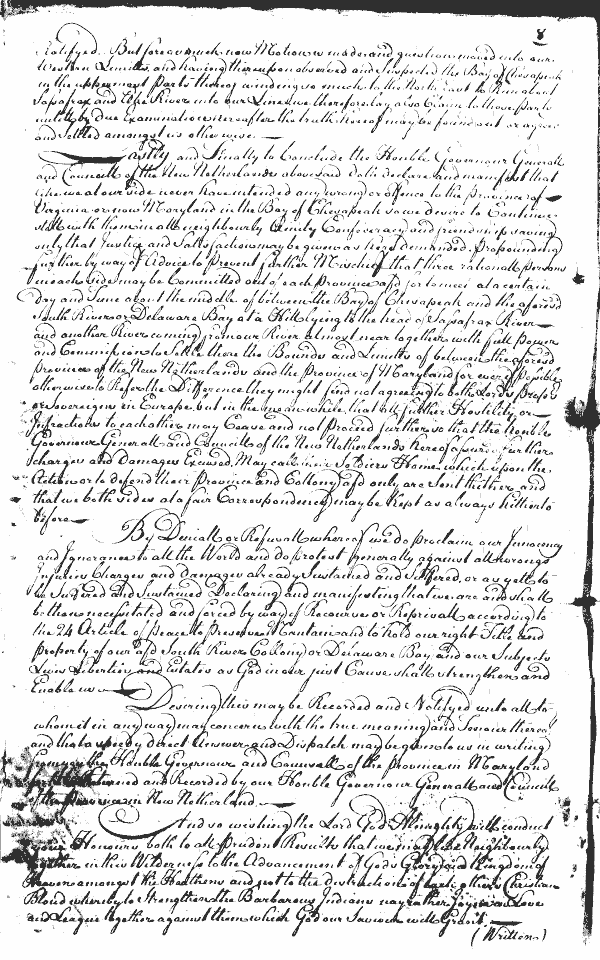 8
Notifyed. But foreasmuch now Motion is made and question moved into our
Western Limitts, and having thereupon observed and Inspected the Bay of Chesapeak
in the uppermost Parts thereof winding so much to the North East to Run about
Sassafrax and Elke River into our Line we therefore lay also Claim to those Parts
untill by due Examination hereafter the truth hereof may be found out or agreed
and settled amongst us otherwise.
Lastly and Finally to Conclude the Honble Governour Generall
and Councill of the New Netherlands abovesaid do declare and manifest that
like we at our side never have intended any wrong or offence to the Province of
Virginia or now Maryland in the Bay of Chesapeak so we desire to Continue
still with them in all neighbourly Amity Confoeracy and friendship saving
only that Justice and Satisfaction may be given as here demanded. Propounding
further by way of Advice to Prevent further Mischief that three rationall Persons
in each side may be Committed out of each Province afsd for to meet at a certain
Day and time about the middle of between the Bay of Chesapeak and the aforesd
South River or Delaware Bay at a Hill lying to the head of Sassafrax River
and another River coming from our River almost near together with full Power
and Commission to Settle there the Bounds and Limitts of between the aforesd
Province of the New Netherlands and the Province of Maryland for ever if possible
otherwise to Refer the Difference they might find not agreeing to both Lords
or Sovereigns in Europe, but in the mean while that all further Hostility or
Infractions to each other may Cease and not Proceed further so that the Honble
Governour Generall and Councill of the New Netherlands hereof assured further
Charges and Damages Excused, May call their Soldiers Home which upon the
Action or to Defend their Province and Collony afsd only are Sent thither and
that we both sides at a fair Correspondency may be Kept as always hitherto
before
By Deniall or Refusall whereof we do proclaim our Innocency
and Ignorance to all the World and do protest generally against all wrongs
Injuries Charges and damages already Sustained and Suffered, or as yet to
be Suffered and Sustained Declaring and manifesting that we are and shall
be then necessitated and forced by way of Recourse or Reprisall according to
the 24 Article of peace to Preserve Mantain and to hold our right Title and
property of our afsd South River Collony or Delaware Bay and our Subjects
Lives Liberties and Estates as God in our just Cause shall strengthen and
Enable us
Desiring this may be Recorded and Notifyed unto all to
whom it in any way may concern with the true meaning and Tenour thereof
and that a speedy direct Answer and Dispatch may be given to us in writing
from the Honble Governour and Councell of the Province in Maryland
and Recorded by our Honble Governour Generall and Councill
of the Province in New Netherland.
And so wishing the Lord God Almighty will conduct
your Honours both to all Prudent Results that we may live Neighbourly
together in this Wilderness to the Advancement of Gods Glory and Kingdom of
Heaven amongst the Heathens and not to the destruction of each others Christian
Blood whereby to Strengthen the Barbarous Indians nay rather Joyne in Love
and League together against them which God our Saviour will Grant.
(Written)